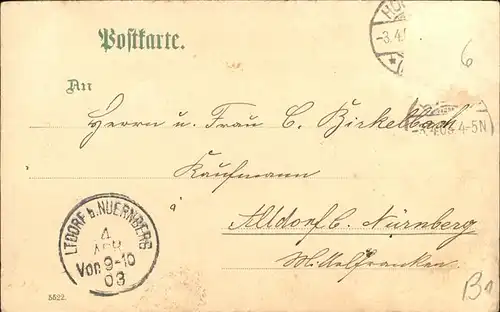 HO
-3.4.
6
Postkarte.
An
Herrn u. Frau C. Birkelbach
4-5N
Kaufmann
Altdorf b. Nürnberg
Mittelfranken
LTDORF b. NUERNBERG
4
APR
Vor 9-10
03
5522.
B